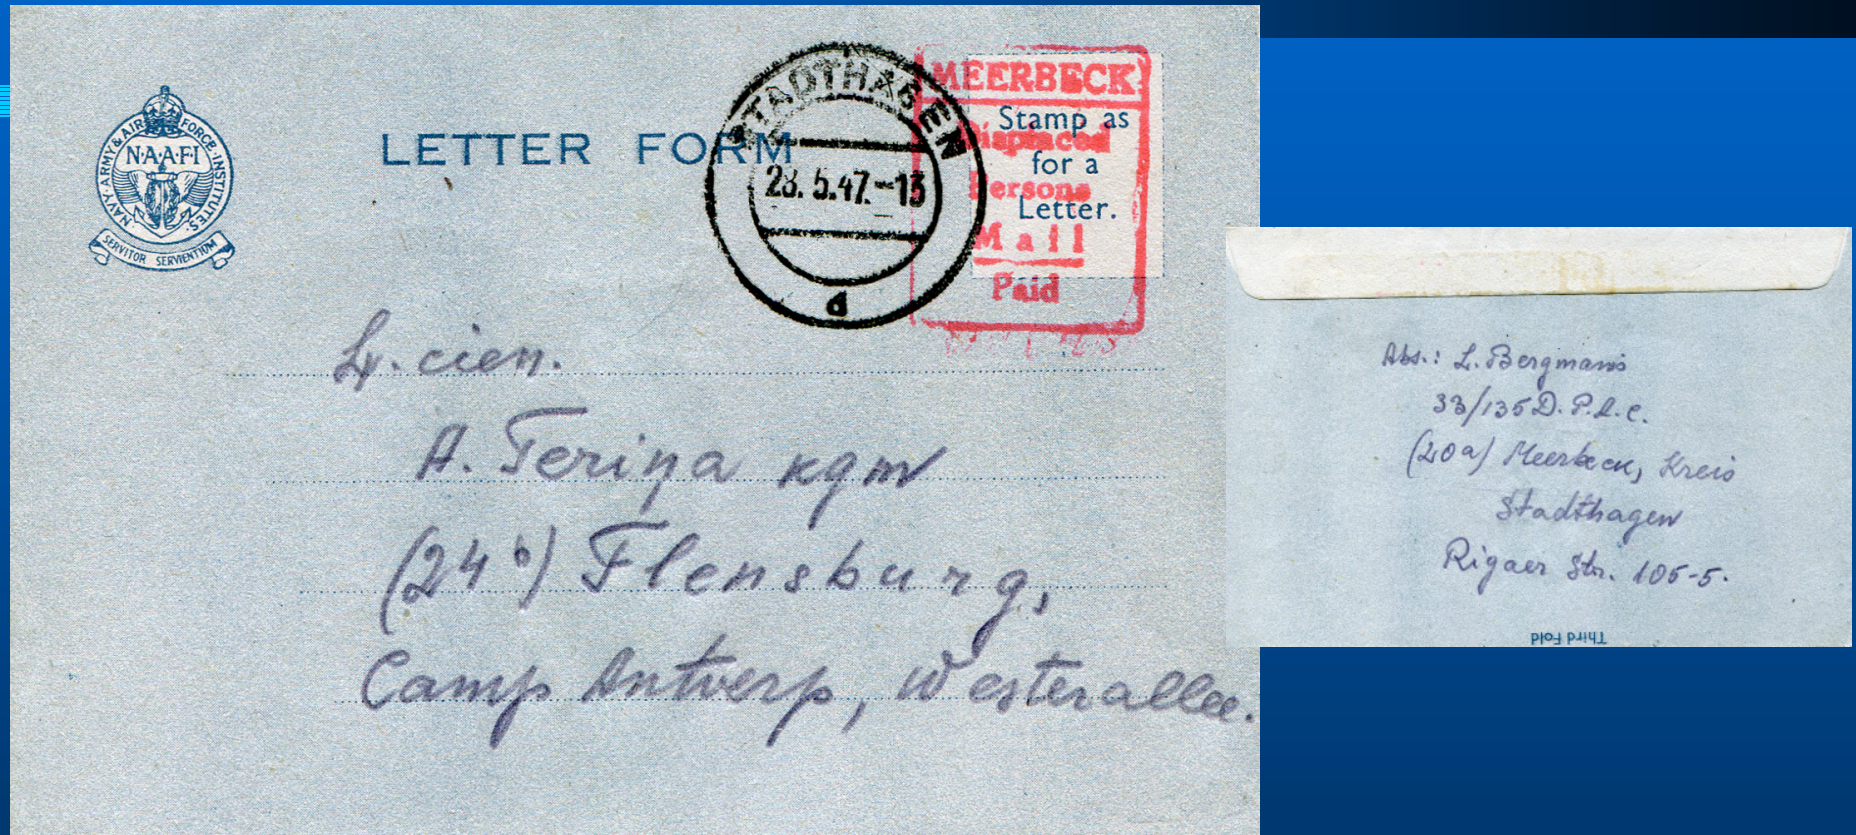 NAVY·ARMY & AIR FORCE·INSTITUTES·
N·A·A·F·I
SERVITOR SERVIENTIUM
LETTER FORM
STADTHAGEN
28.5.47.-13
d
MEERBECK
Displaced
Persons
Mail
Paid
Stamp as
for a
Letter.
cien.
A. Teriņa kgm
(24b) Flensburg,
Camp Antverp, Westerallee.
Abs.: L. Bergmanis
33/135 D.P.A.C.
(20a) Meerbeck, Kreis
Stadthagen
Rigaer Str. 105-5.
Third Fold